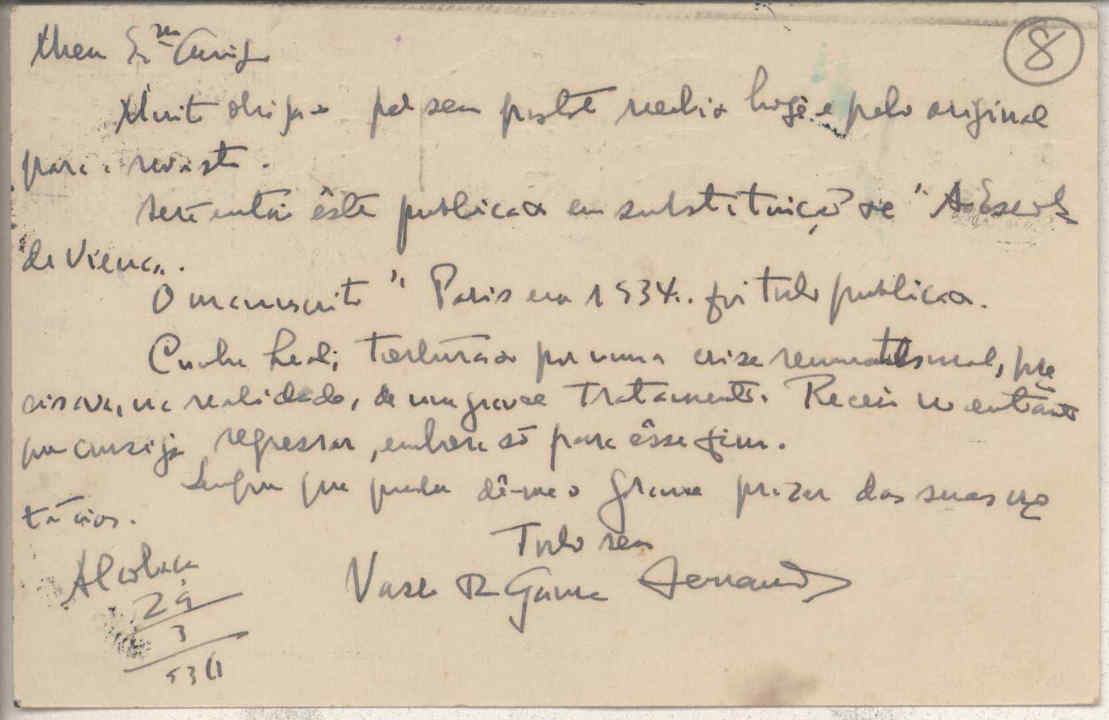 8
Meu Exm Amigo
Muito obrigado pelo seu postal recebido hoje e pelo original
para a revista.
Será então êste publicado em substituição de "A Escola
de Viena".
O manuscrito "Paris em 1934" foi todo publicado.
Cunha Leal, torturado por uma crise reumatismal, pre
cisava, na realidade, de um grande tratamento. Receio no entanto
que consiga regressar, embora só para êsse fim.
Sempre que possa dê-me o grande prazer das suas no
tícias.
Todo seu
Vasco da Gama Fernandes
Alcobaça
29
3